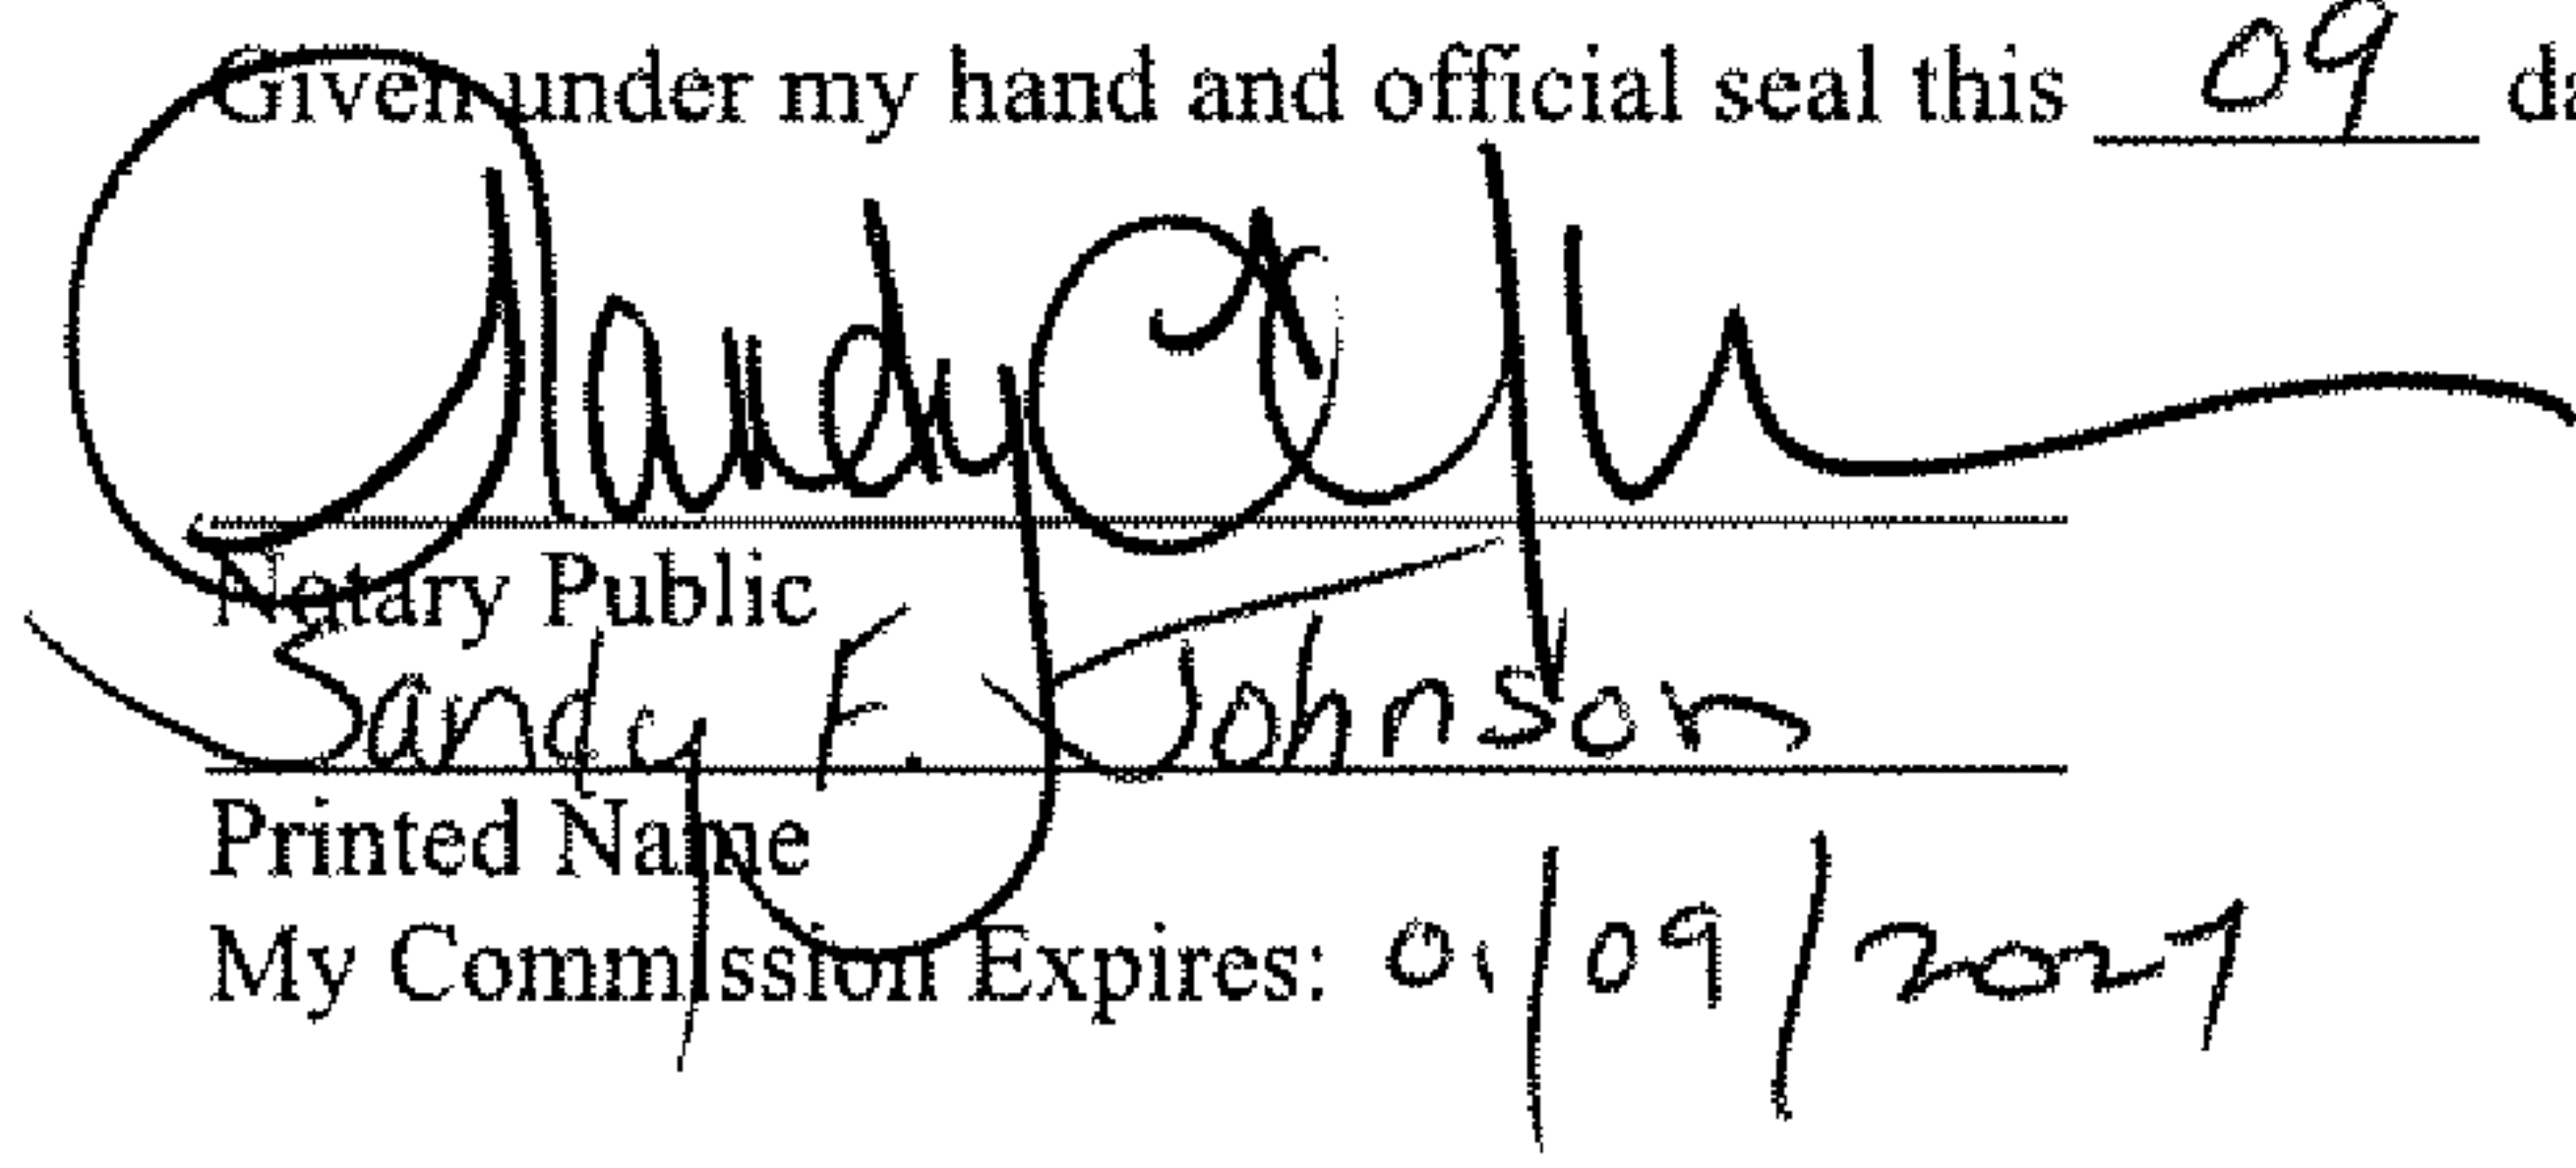 Given under my hand and official seal this 09 da
Notary Public
Sandy E. Johnson
Printed Name
My Commission Expires: 01/09/2027